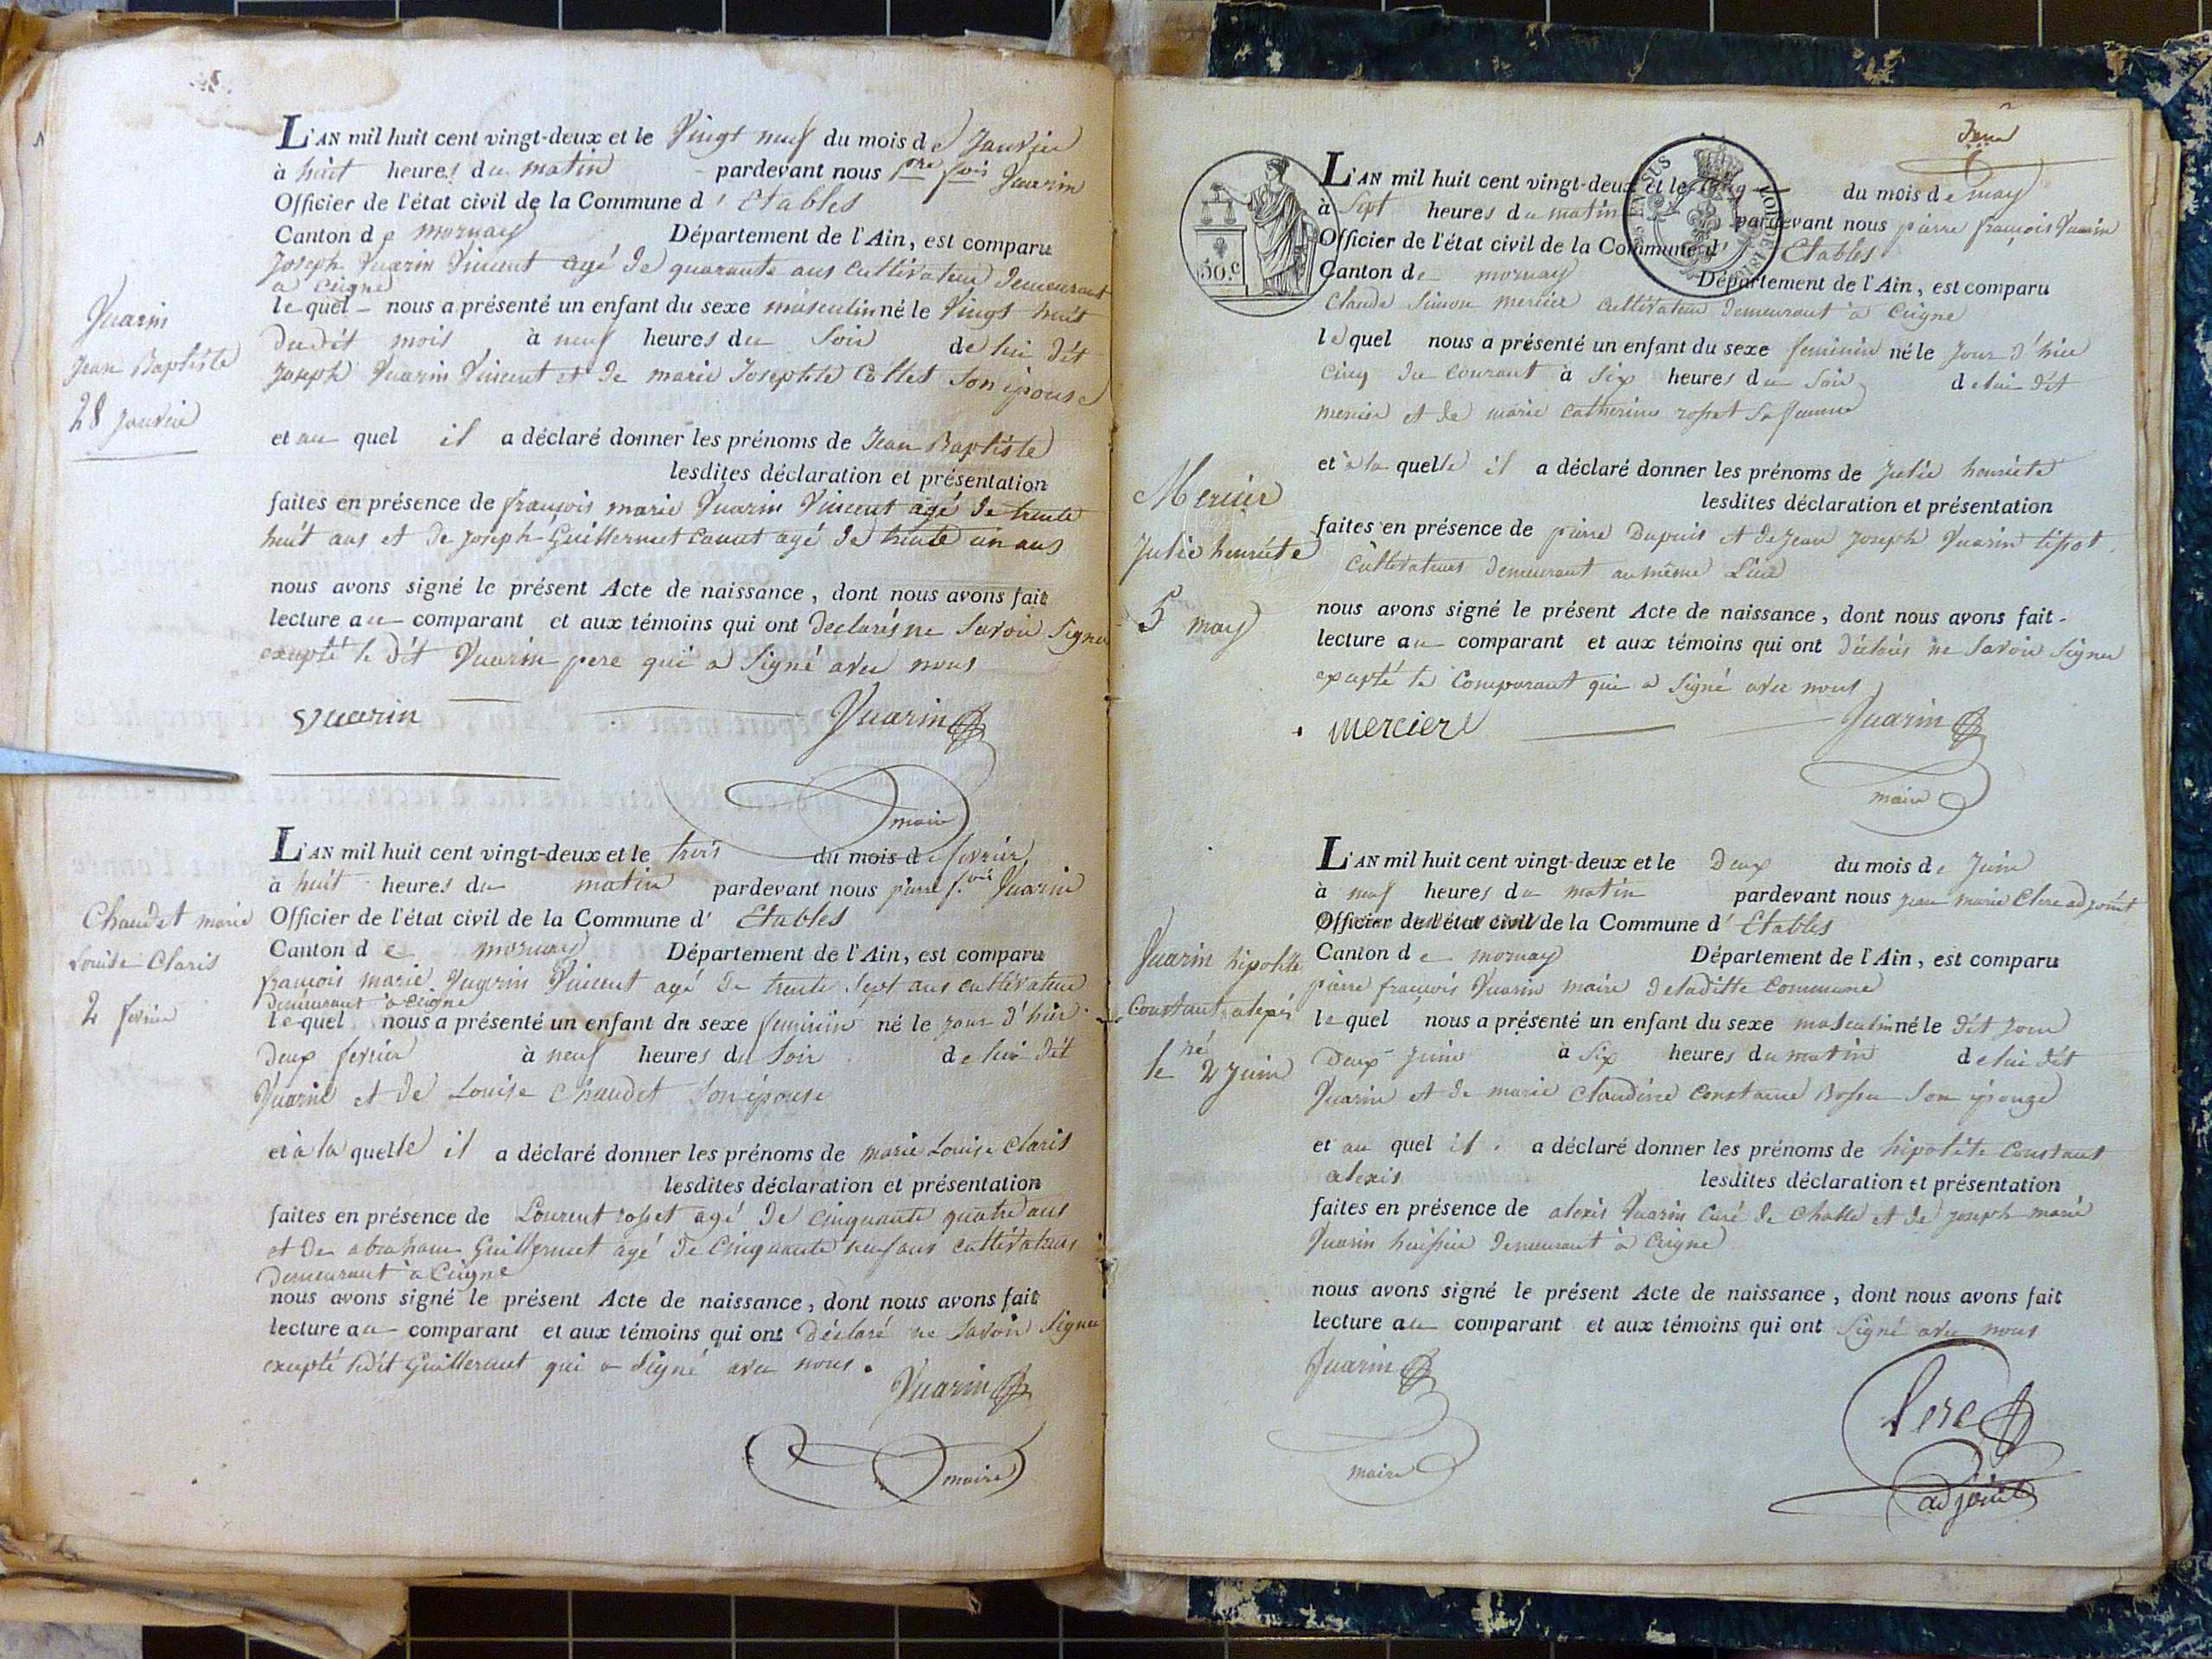 L'AN mil huit cent vingt-deux et le Vingt neuf du mois de Janvier
à huit heures du matin pardevant nous pre fois Vuarin
Officier de l'état civil de la Commune d' Etables
Canton de mornay Département de l'Ain, est comparu
Joseph Vuarin Vincent agé de quarante ans cultivateur demeurant
a Ceigne
le quel nous a présenté un enfant du sexe masculin né le Vingt huit
dudit mois à neuf heures du Soir de lui dit
Joseph Vuarin Vincent et de marie Josephte Collet Son épouse
et au quel il a déclaré donner les prénoms de Jean Baptiste
lesdites déclaration et présentation
faites en présence de françois marie Vuarin Vincent agé de trente
huit ans et de joseph Guillermet agé de trente un ans
nous avons signé le présent Acte de naissance, dont nous avons fait
lecture au comparant et aux témoins qui ont declarés ne Savoir Signer
exepté le dit Vuarin pere qui a Signé avec nous
Vuarin Vuarin
maire
Vuarin
Jean Baptiste
28 janvier
L'AN mil huit cent vingt-deux et le trois du mois de fevrier
à huit heures du matin pardevant nous pierre f.ois Vuarin
Officier de l'état civil de la Commune d' Etables
Canton de mornay Département de l'Ain, est comparu
françois marie Vuarin Vincent agé de trente Sept ans cultivateur
demeurant à Ceigne
le quel nous a présenté un enfant du sexe feminin né le jour d'hier
Deux fevrier à neuf heures du Soir de lui dit
Vuarin et de Louise Chaudet Son épouse
et à la quelle il a déclaré donner les prénoms de marie Louise Claris
lesdites déclaration et présentation
faites en présence de Lourent rosset agé de cinquante quatre ans
et de abraham Guillermet agé de Cinquante neuf ans cultivateurs
demeurant à Ceigne
nous avons signé le présent Acte de naissance, dont nous avons fait
lecture au comparant et aux témoins qui ont Déclaré ne Savoir Signer
exepté ledit Guillermet qui a Signé avec nous.
Vuarin
maire
Chaudet marie
Louise Claris
2 fevrier
2
50.C
L'AN mil huit cent vingt-deux et le du mois de may
à Sept heures du matin pardevant nous pierre françois Vuarin
Officier de l'état civil de la Commune d' Etables
Canton de mornay Département de l'Ain, est comparu
Claude Simon mercier cultivateur demeurant à Ceigne
le quel nous a présenté un enfant du sexe feminin né le Jour d'hier
cinq du courant à Six heures du Soir de lui dit
mercier et de marie catherine rosset Sa femme
et à la quelle il a déclaré donner les prénoms de Julie henriete
lesdites déclaration et présentation
faites en présence de pierre Dupuis et de Jean Joseph Vuarin
Cultivateurs demeurant au même Lieu
nous avons signé le présent Acte de naissance, dont nous avons fait
lecture au comparant et aux témoins qui ont déclarés ne Savoir Signer
exepté le Comparant qui a Signé avec nous
mercier Vuarin
maire
Mercier
Julie henriete
5 may
L'AN mil huit cent vingt-deux et le Deux du mois de Juin
à neuf heures du matin pardevant nous jean marie Clerc adjoint
Officier de l'état civil de la Commune d' Etables
Canton de mornay Département de l'Ain, est comparu
pierre françois Vuarin maire de laditte Commune
le quel nous a présenté un enfant du sexe masculin né le dit jour
Deux Juin à Six heures du matin de lui dit
Vuarin et de marie Claudine Constance Bossu Son épouze
et au quel il a déclaré donner les prénoms de hipolite Constant
alexis lesdites déclaration et présentation
faites en présence de alexis Vuarin Curé de et de joseph marie
Vuarin huissier demeurant à Ceigne
nous avons signé le présent Acte de naissance, dont nous avons fait
lecture au comparant et aux témoins qui ont Signé avec nous
Vuarin
maire
Clerc
adjoint
Vuarin hipolitte
Constant alexis
né
le 2 Juin